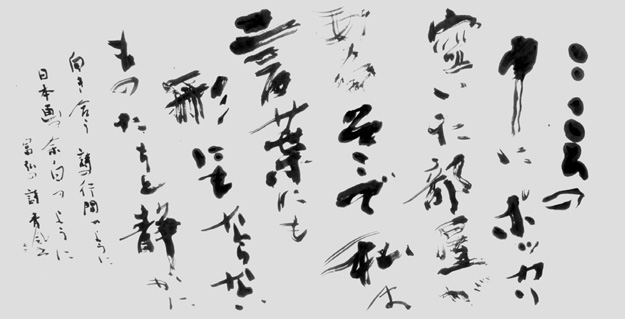 こころの
中に ポッカリ
空いた部屋が
そこで私は
言葉にも
形にもならない
ものたちと静かに
向き合う 詩の行間のように
日本画の余白のように
富弘の詩